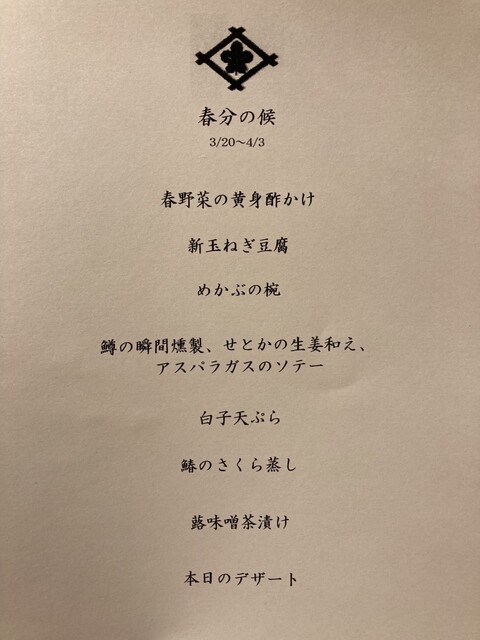 春分の候
3/20〜4/3
春野菜の黄身酢かけ
新玉ねぎ豆腐
めかぶの椀
鱒の瞬間燻製、せとかの生姜和え、
アスパラガスのソテー
白子天ぷら
鰆のさくら蒸し
蕗味噌茶漬け
本日のデザート